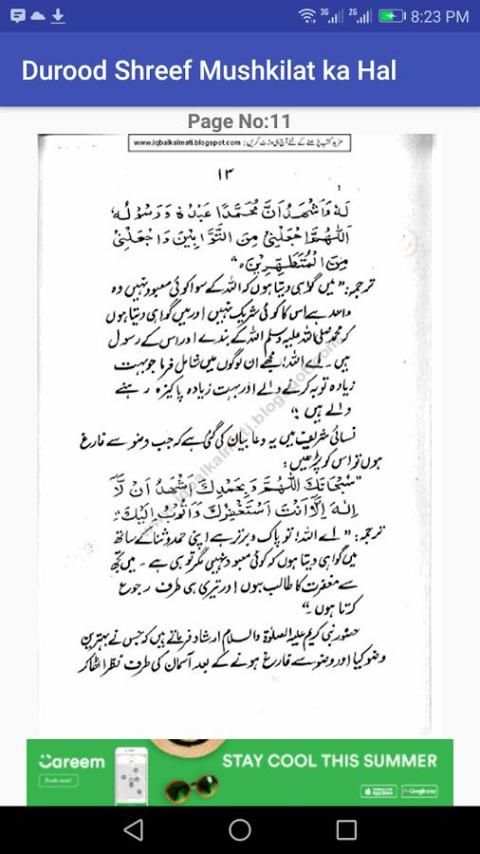 8:23 PM
Durood Shreef Mushkilat ka Hal
Page No:11
مزید کتب پڑھنے کے لئے آج ہی وزٹ کریں: www.iqbalkalmati.blogspot.com
۱۳
لَهٗ وَاَشْهَدُ اَنَّ مُحَمَّدًا عَبْدُهٗ وَرَسُوْلُهٗ
اَللّٰهُمَّ اجْعَلْنِیْ مِنَ التَّوَّابِیْنَ وَاجْعَلْنِیْ
مِنَ الْمُتَطَهِّرِیْنَ ۰"
ترجمہ: "میں گواہی دیتا ہوں کہ اللہ کے سوا کوئی معبود نہیں وہ
واحد ہے اس کا کوئی شریک نہیں اور میں گواہی دیتا ہوں
کہ محمد صلی اللہ علیہ وسلم اللہ کے بندے اور اس کے رسول
ہیں ۔ اے اللہ! مجھے ان لوگوں میں شامل فرما جو بہت
زیادہ توبہ کرنے والے اور بہت زیادہ پاکیزہ رہنے
والے ہیں ۔"
نسائی شریف میں یہ دعا بیان کی گئی ہے کہ جب وضو سے فارغ
ہوں تو اس کو پڑھیں:
"سُبْحَانَكَ اللّٰهُمَّ وَبِحَمْدِكَ اَشْهَدُ اَنْ لَّآ
اِلٰهَ اِلَّا اَنْتَ اَسْتَغْفِرُكَ وَاَتُوْبُ اِلَیْكَ:
ترجمہ: "اے اللہ! تو پاک و برتر ہے اپنی حمد و ثنا کے ساتھ
میں گواہی دیتا ہوں کہ کوئی معبود نہیں مگر تو ہی ہے ۔ میں تجھ
سے مغفرت کا طالب ہوں اور تیری ہی طرف رجوع
کرتا ہوں ۔"
حضور نبی کریم علیہ الصلوٰۃ والسلام ارشاد فرماتے ہیں کہ جس نے بہترین
وضو کیا اور وضو سے فارغ ہونے کے بعد آسمان کی طرف نظر اٹھا کر
Careem
STAY COOL THIS SUMMER